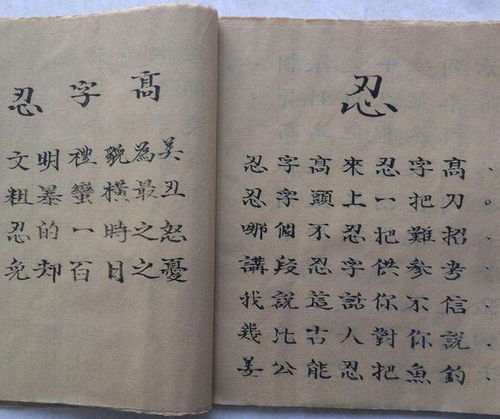 忍字髙
文明禮貌為美
粗暴蠻橫最丑
忍的一時之怒
免却百日之憂
忍
忍字髙來忍字髙、
忍字頭上一把刀。
哪個不忍把難招
講段忍字供參考
找說這話你不信
幾比古人對你說
姜公能忍把魚釣